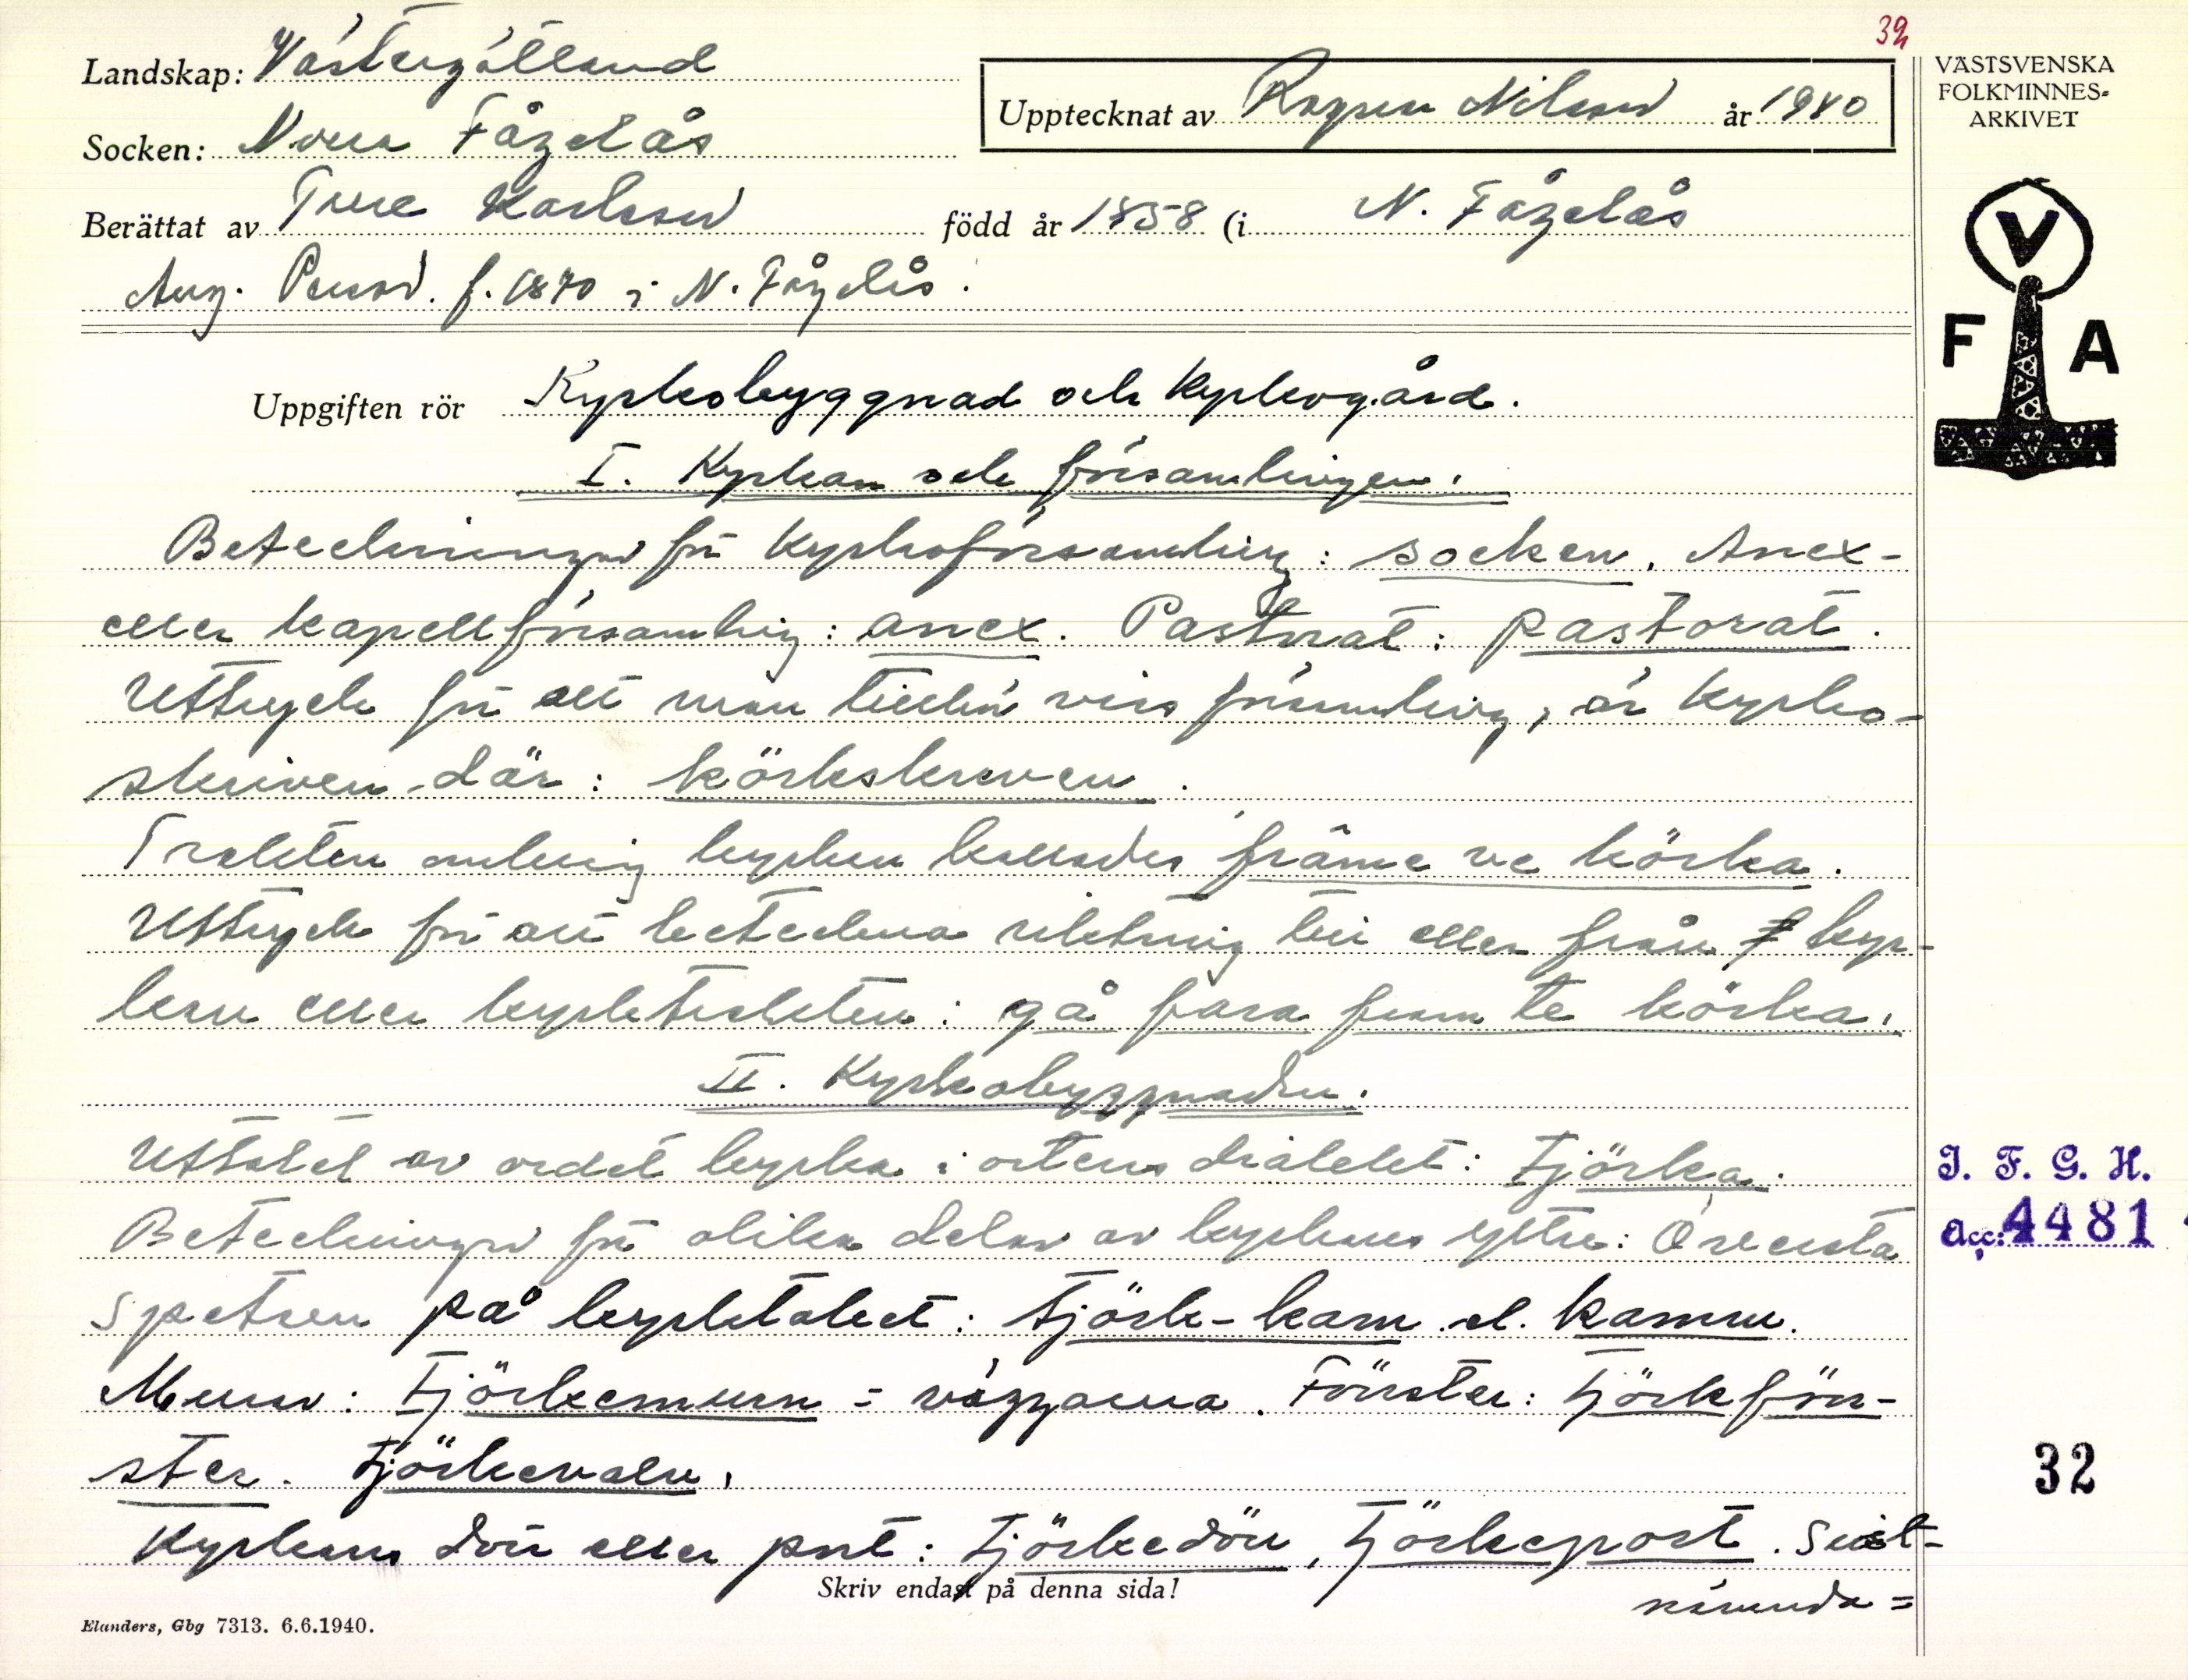 32
Landskap: Västergötland
VÄSTSVENSKA
FOLKMINNES-
ARKIVET
Upptecknat av Ragnar Nilsson år 1940
Socken: Norra Fågelås
Berättat av Ture Karlsson född år 1858 (i N. Fågelås
Aug. Persson. f. 1870 i N. Fågelås.
V
F A
Uppgiften rör Kyrkobyggnad och kyrkogård.
I. Kyrkan och församlingen.
Beteckningar för kyrkoförsamling: socken. Anex-
eller kapellförsamling: anex. Pastorat: pastorat.
Uttryck för att man tillhör viss församling, är kyrko-
skriven där: körkskreven.
Trakten omkring kyrkan kallades främe ve körka.
Uttryck för att beteckna riktning till eller från kyr-
kan eller kyrktrakten: gå fara fram te körka.
II. Kyrkobyggnaden.
Uttalet av ordet kyrka i ortens dialekt: tjörka.
Beteckningar för olika delar av kyrkans yttre: Översta
spetsen på kyrktaket: tjörk-kam el. kamen.
Murar: tjörkemurn = väggarna. Fönster: tjörkfön-
ster. tjörkevalv.
Kyrkans dörr eller port: tjörkedörr, tjörkeport.
Skriv endast på denna sida!
Elanders, Gbg 7313. 6.6.1940.
I. F. G. H.
Acc: 4481
32